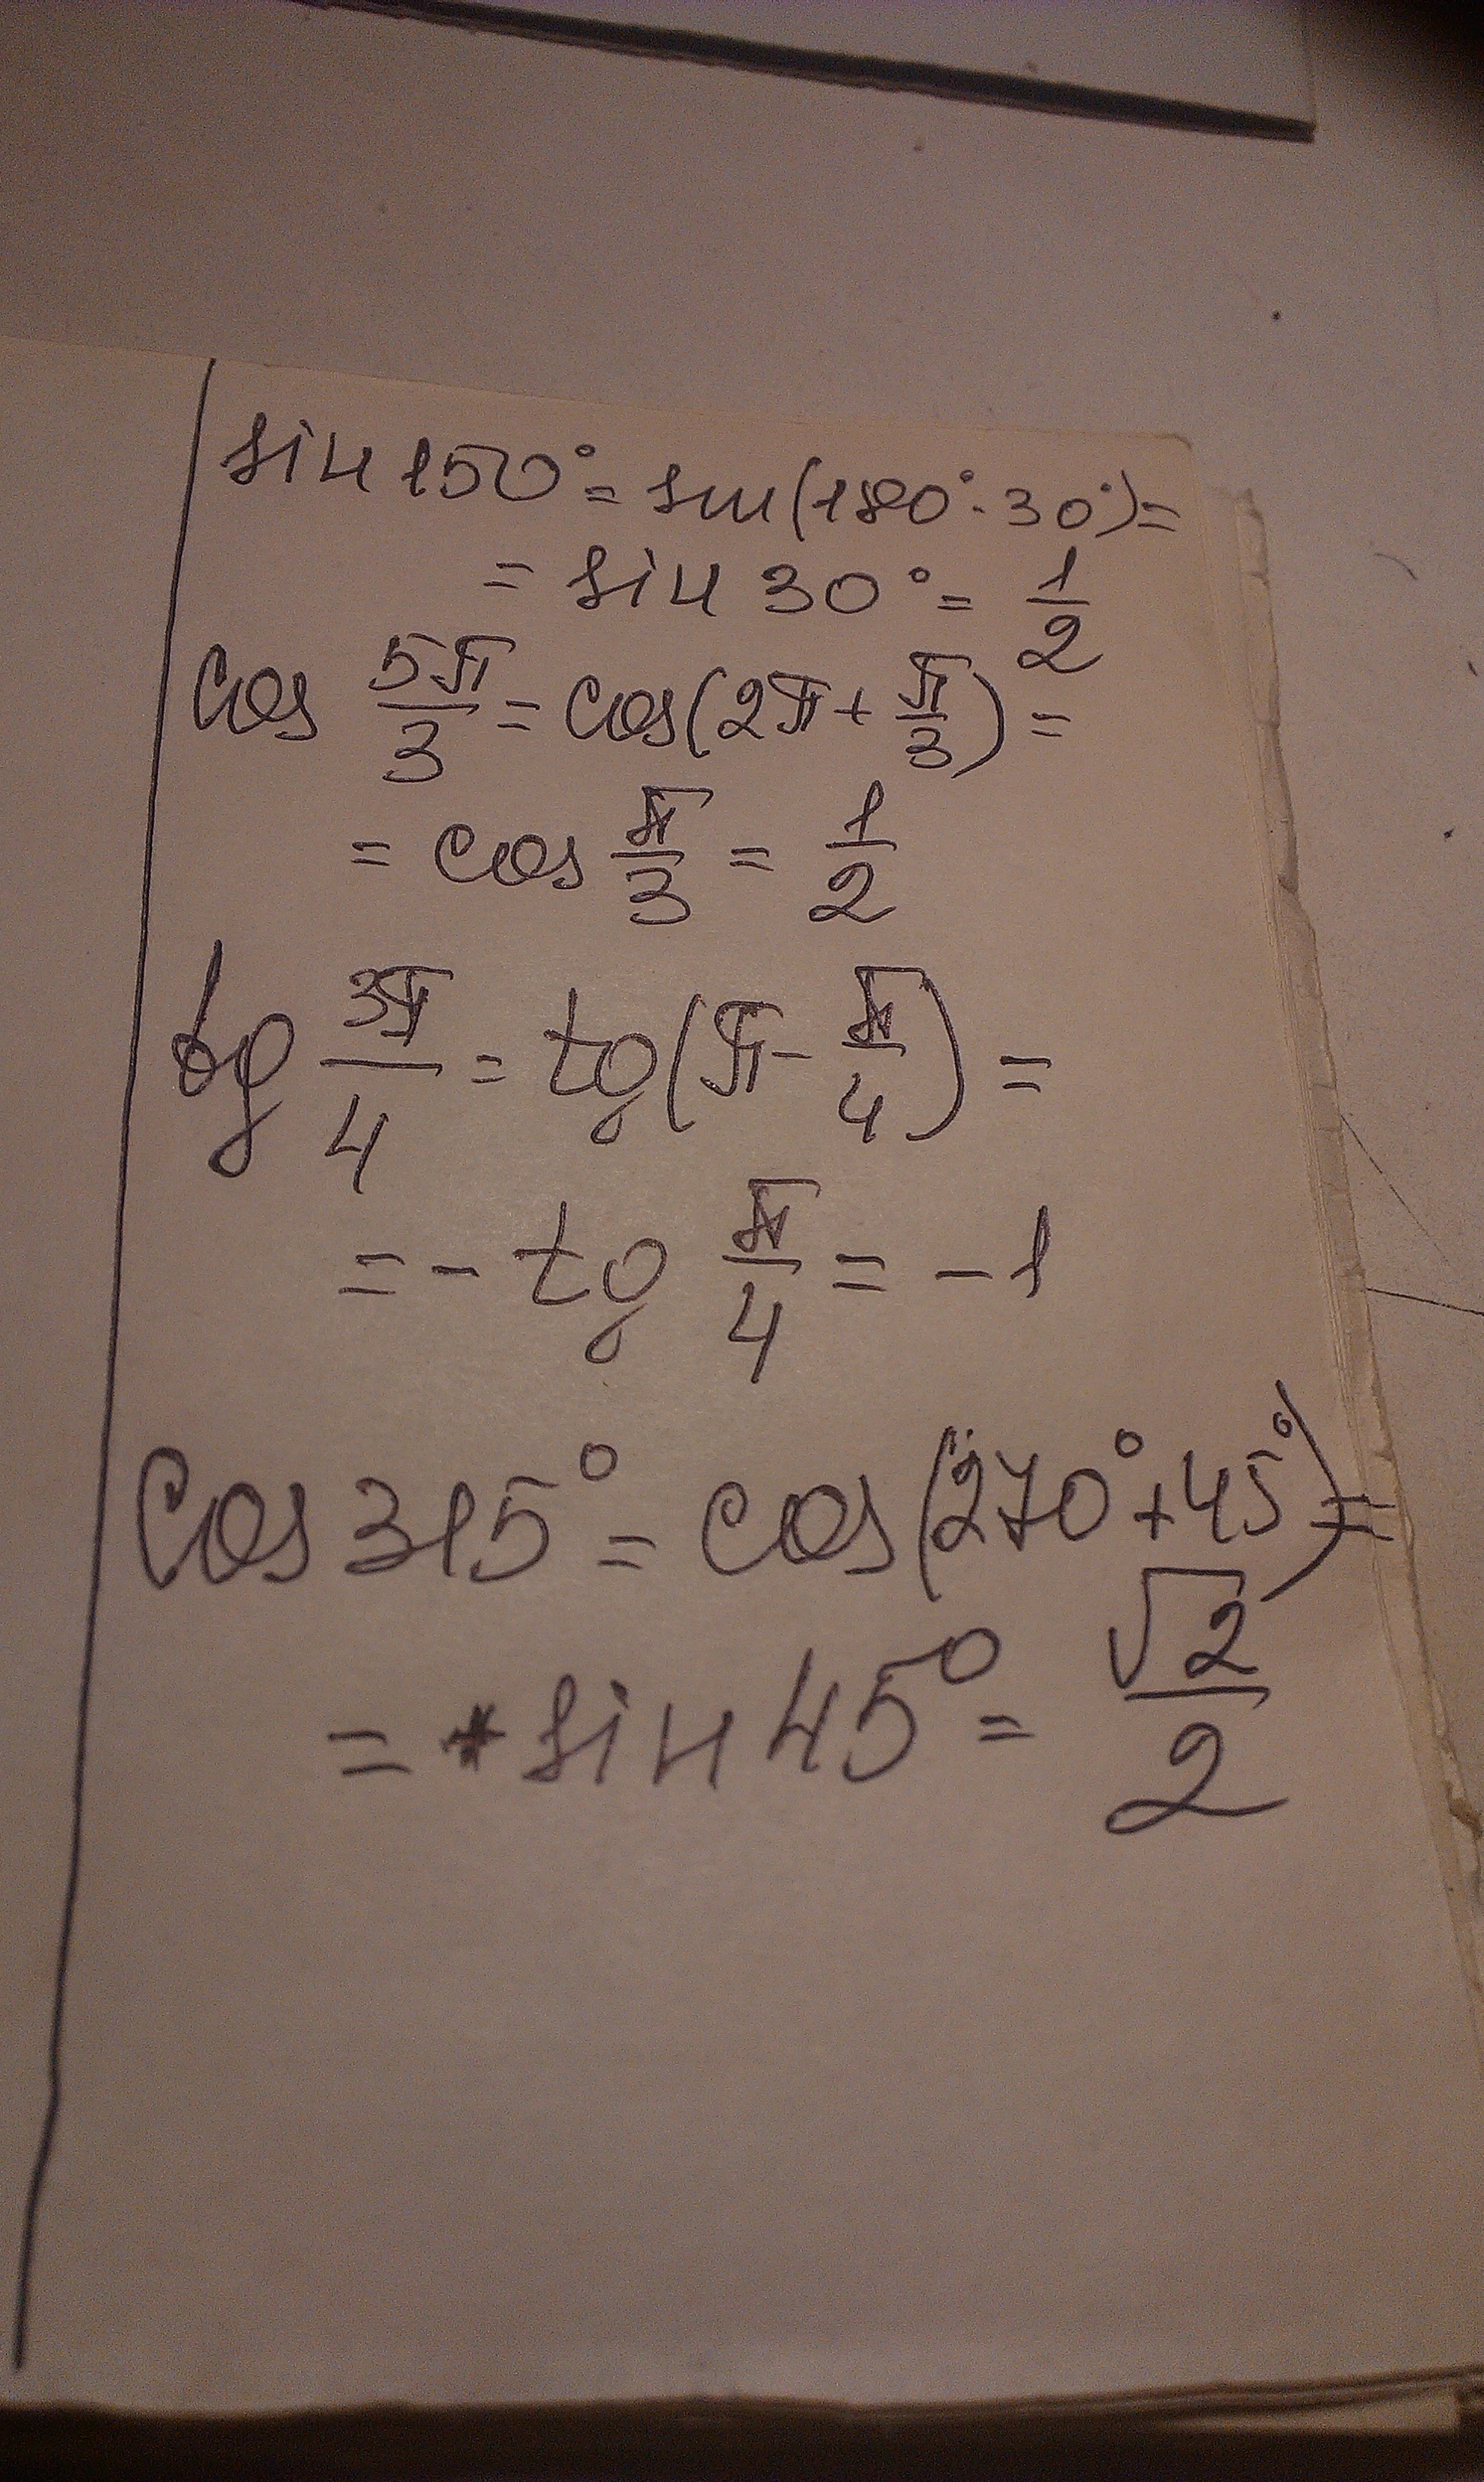 sin 150° = sin(180° - 30°) =
= sin 30° = 1/2
cos 5π/3 = cos(2π + π/3) =
= cos π/3 = 1/2
tg 3π/4 = tg(π - π/4) =
= - tg π/4 = - 1
cos 315° = cos(270° + 45°) =
= sin 45° = √2/2